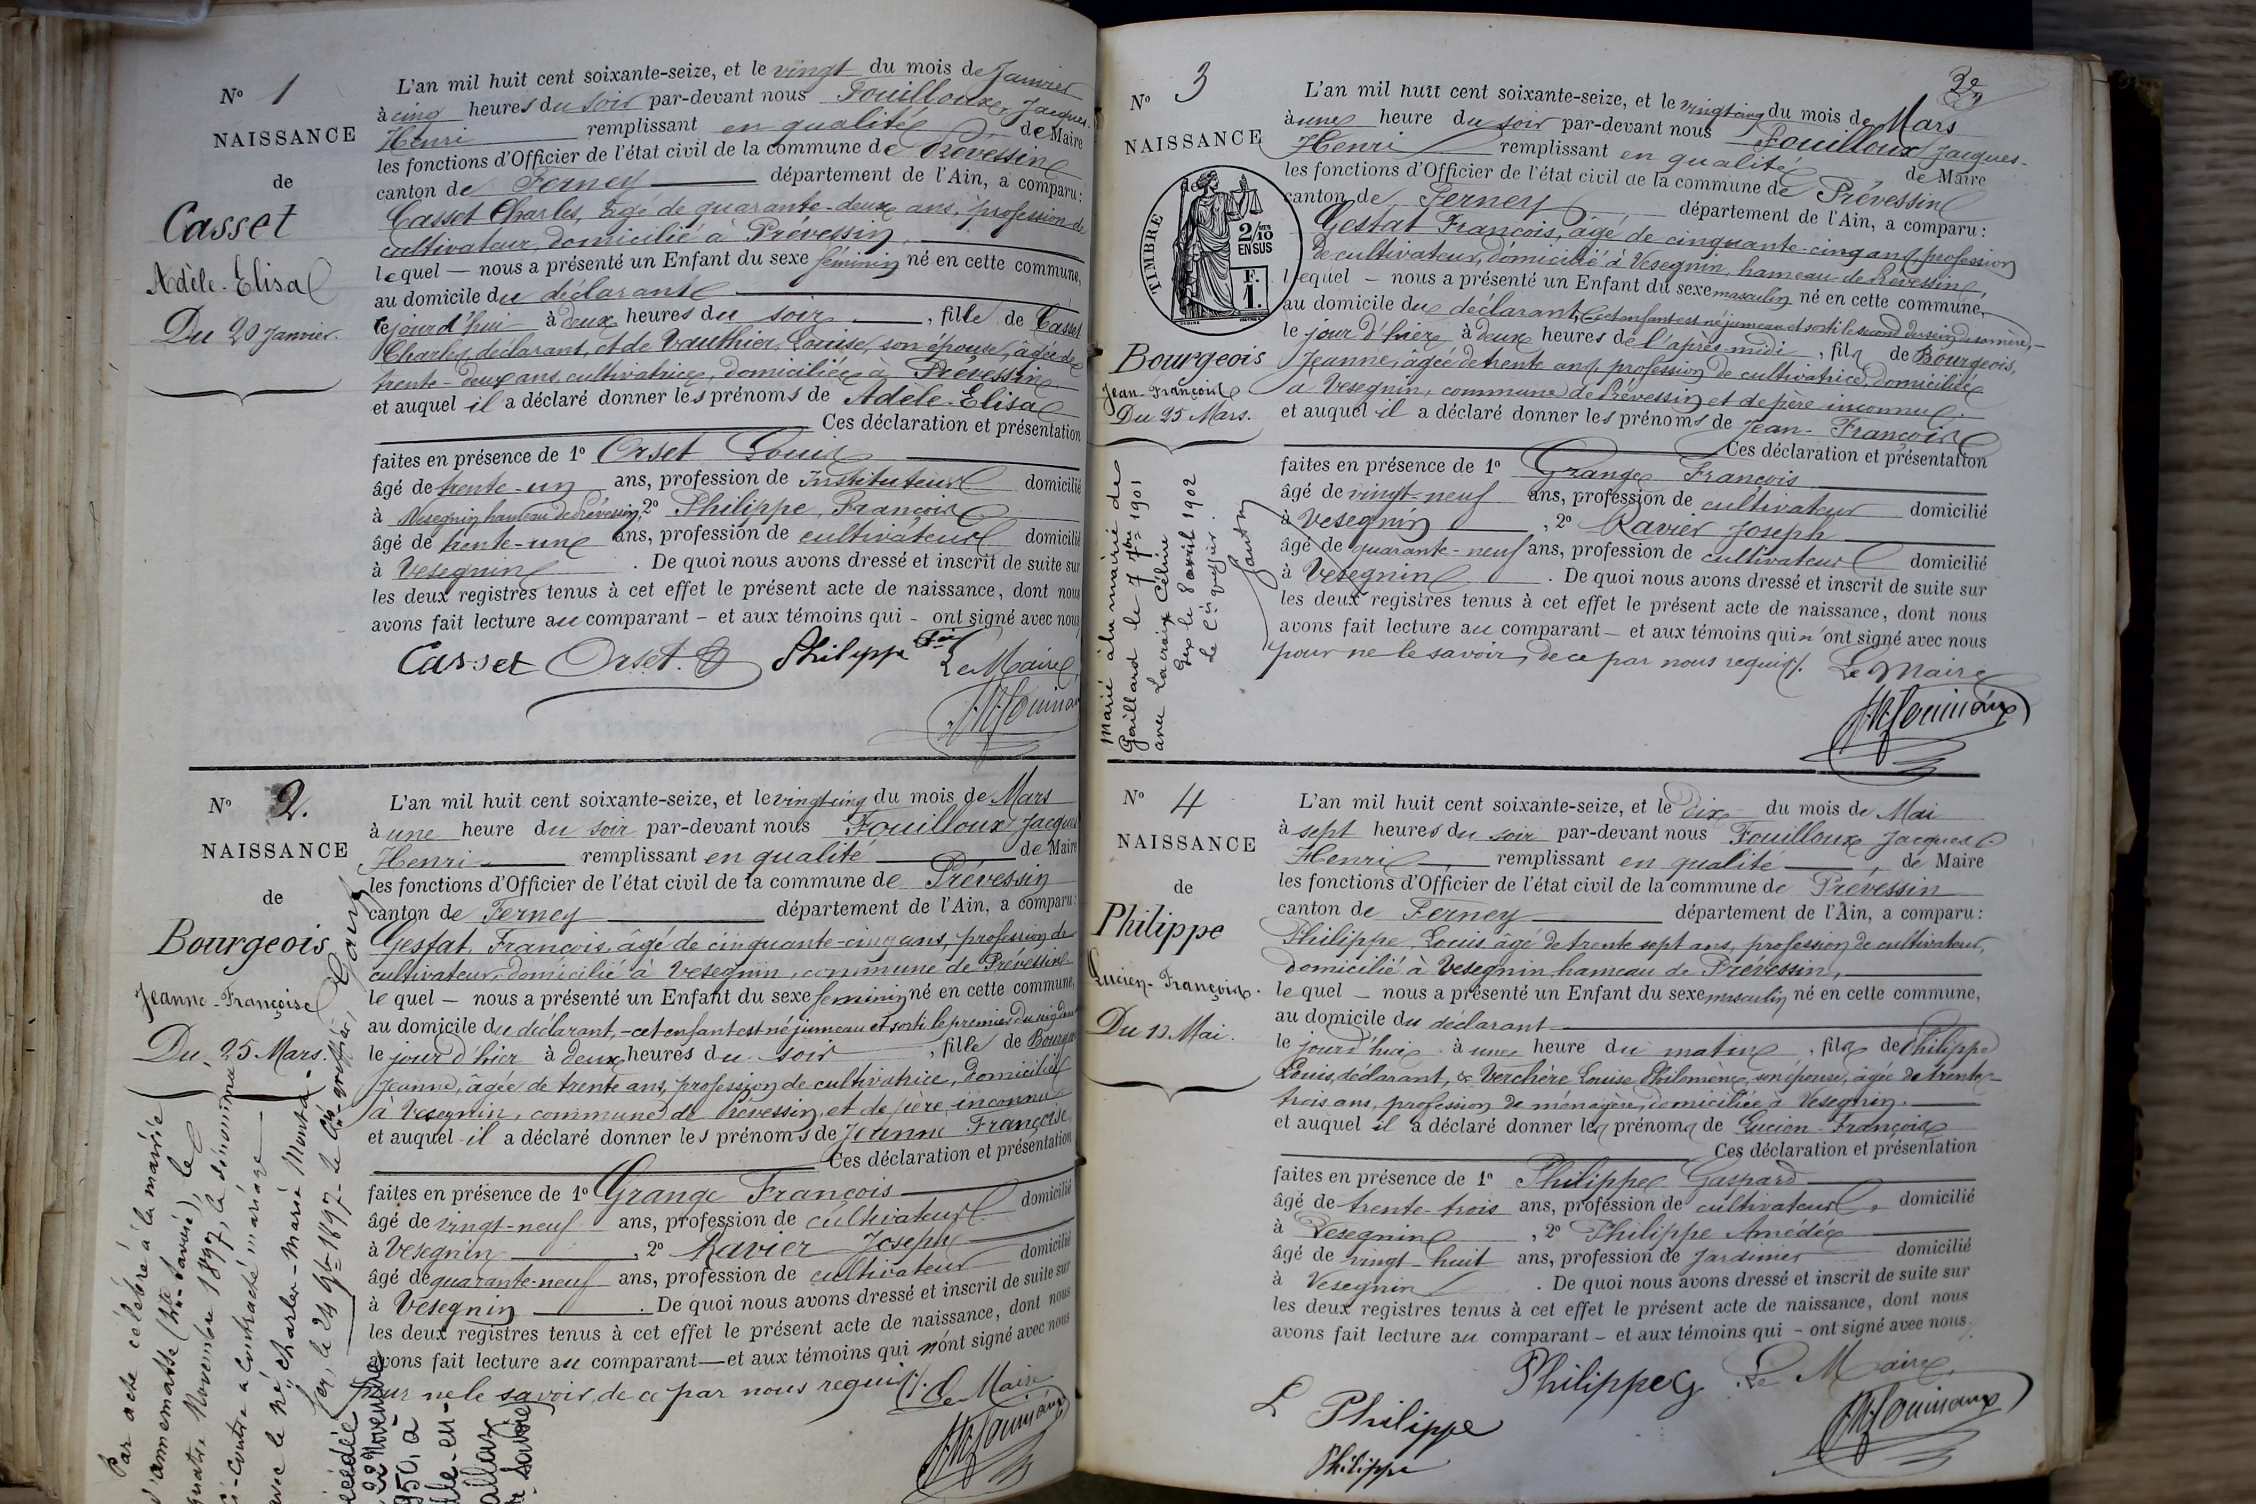 N° 1
NAISSANCE
de
Casset
Adèle-Elisa
Du 20 Janvier.
L'an mil huit cent soixante-seize, et le vingt du mois de Janvier
à cinq heures du soir par-devant nous Fouilloux, Jacques-
Henri remplissant en qualité de Maire
les fonctions d'Officier de l'état civil de la commune de Prévessin
canton de Ferney département de l'Ain, a comparu:
Casset Charles, âgé de quarante-deux ans, profession de
cultivateur, domicilié à Prévessin,
lequel — nous a présenté un Enfant du sexe féminin né en cette commune,
au domicile du déclarant
cejourd'hui à deux heures du soir, fille de Casset
Charles, déclarant, et de Vauthier Louise, son épouse, âgée de
trente-deux ans, cultivatrice, domiciliée à Prévessin
et auquel il a déclaré donner les prénoms de Adèle-Elisa
Ces déclaration et présentation
faites en présence de 1° Orset Louis
âgé de trente-un ans, profession de Instituteur domicilié
à Vesegnin hameau de Prévessin, 2° Philippe François
âgé de trente-un ans, profession de cultivateur domicilié
à Vesegnin. De quoi nous avons dressé et inscrit de suite sur
les deux registres tenus à cet effet le présent acte de naissance, dont nous
avons fait lecture au comparant — et aux témoins qui — ont signé avec nous
Casset Orset. Philippe Fçois Le Maire
N° 2.
NAISSANCE
de
Bourgeois
Jeanne-Françoise
Du 25 Mars.
L'an mil huit cent soixante-seize, et le vingt cinq du mois de Mars
à une heure du soir par-devant nous Fouilloux Jacques
Henri remplissant en qualité de Maire
les fonctions d'Officier de l'état civil de la commune de Prévessin
canton de Ferney département de l'Ain, a comparu:
Gestat François, âgé de cinquante-cinq ans, profession de
cultivateur, domicilié à Vesegnin, commune de Prévessin
lequel — nous a présenté un Enfant du sexe féminin né en cette commune,
au domicile du déclarant, - cet enfant est né jumeau et sorti le premier du
le jour d'hier à deux heures du soir, fille de Bourgeois
Jeanne, âgée de trente ans, profession de cultivatrice, domiciliée
à Vesegnin, commune de Prévessin, et de père inconnu
et auquel il a déclaré donner les prénoms de Jeanne Françoise.
Ces déclaration et présentation
faites en présence de 1° Grange François
âgé de vingt-neuf ans, profession de cultivateur domicilié
à Vesegnin, 2° Ravier Joseph
âgé de quarante-neuf ans, profession de cultivateur domicilié
à Vesegnin. De quoi nous avons dressé et inscrit de suite sur
les deux registres tenus à cet effet le présent acte de naissance, dont nous
avons fait lecture au comparant — et aux témoins qui n'ont signé avec nous
pour ne le savoir, de ce par nous requis. Le Maire
Par acte célébré à la mairie
d'annemasse (Hte Savoie), le
quatre Novembre 1897, la dénommée
ci-contre a contracté mariage
avec le né Charles-Marie
Gex, le 24 9bre 1897 - Le Cis greffier,
décédée
22 Novembre
1950, à
N° 3
NAISSANCE
TIMBRE
2/10
EN SUS
F.
1.
Bourgeois
Jean-François
Du 25 Mars.
Marié à la mairie de
Gaillard le 7 7bre 1901
avec Lacroix Céline
Gex le 8 avril 1902
Le Cis greffier
L'an mil huit cent soixante-seize, et le vingt cinq du mois de Mars
à une heure du soir par-devant nous Fouilloux Jacques-
Henri remplissant en qualité de Maire
les fonctions d'Officier de l'état civil de la commune de Prévessin
canton de Ferney département de l'Ain, a comparu:
Gestat François, âgé de cinquante-cinq ans, profession
de cultivateur, domicilié à Vesegnin, hameau de Prévessin,
lequel — nous a présenté un Enfant du sexe masculin né en cette commune,
au domicile du déclarant, Cet enfant est né jumeau et sorti le second du sein de sa mère,
le jour d'hier à deux heures de l'après-midi, fils de Bourgeois,
Jeanne, âgée de trente ans, profession de cultivatrice, domiciliée
à Vesegnin, commune de Prévessin et de père inconnu.
et auquel il a déclaré donner les prénoms de Jean-François
Ces déclaration et présentation
faites en présence de 1° Grange François
âgé de vingt-neuf ans, profession de cultivateur domicilié
à Vesegnin, 2° Ravier Joseph
âgé de quarante-neuf ans, profession de cultivateur domicilié
à Vesegnin. De quoi nous avons dressé et inscrit de suite sur
les deux registres tenus à cet effet le présent acte de naissance, dont nous
avons fait lecture au comparant — et aux témoins qui n'ont signé avec nous
pour ne le savoir, de ce par nous requis. Le Maire
N° 4
NAISSANCE
de
Philippe
Lucien-François.
Du 10 Mai.
L'an mil huit cent soixante-seize, et le dix du mois de Mai
à sept heures du soir par-devant nous Fouilloux Jacques
Henri remplissant en qualité de Maire
les fonctions d'Officier de l'état civil de la commune de Prévessin
canton de Ferney département de l'Ain, a comparu:
Philippe Louis âgé de trente sept ans, profession de cultivateur,
domicilié à Vesegnin hameau de Prévessin,
lequel — nous a présenté un Enfant du sexe masculin né en cette commune,
au domicile du déclarant
le jourd'hui à une heure du matin, fils de Philippe
Louis, déclarant, & Verchère Louise Philomène, son épouse, âgée de trente-
trois ans, profession de ménagère, domiciliée à Vesegnin.
et auquel il a déclaré donner les prénoms de Lucien-François
Ces déclaration et présentation
faites en présence de 1° Philippe Gaspard
âgé de trente-trois ans, profession de cultivateur, domicilié
à Vesegnin, 2° Philippe Amédée
âgé de vingt-huit ans, profession de Jardinier domicilié
à Vesegnin. De quoi nous avons dressé et inscrit de suite sur
les deux registres tenus à cet effet le présent acte de naissance, dont nous
avons fait lecture au comparant — et aux témoins qui — ont signé avec nous.
Philippe G Le Maire
L Philippe
Philippe